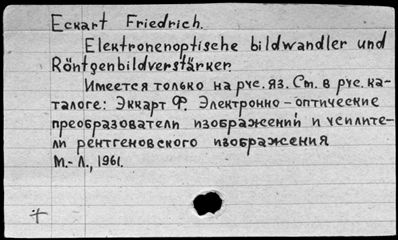 Eckart Friedrich.
Elektronenoptische bildwandler und
Röntgenbildverstärker.
Имеется только на рус. яз. См. в рус. ка-
талоге: Эккарт Ф. Электронно-оптические
преобразователи изображений и усилите-
ли рентгеновского изображения
М.-Л., 1961.